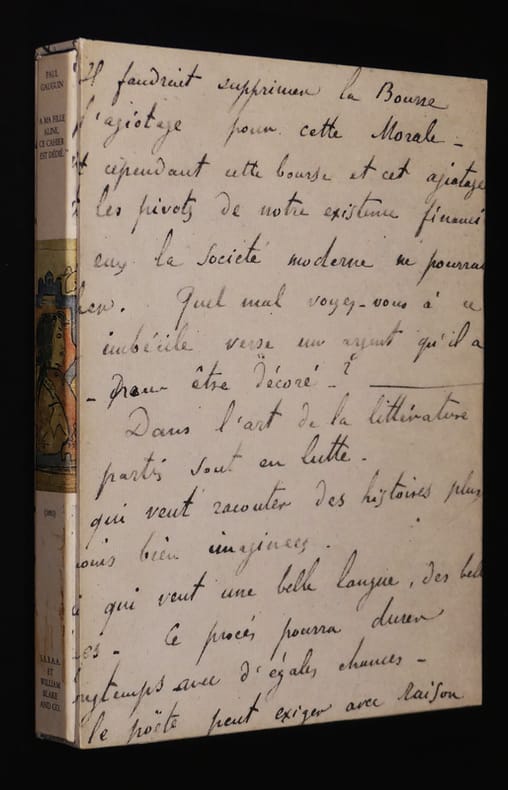 PAUL
GAUGUIN
A MA FILLE
ALINE,
CE CAHIER
EST DÉDIÉ.
(1893)
S.B.B.A.A.
ET
WILLIAM
BLAKE
AND CO.
Il faudrait supprimer la Bourse
l'agiotage pour cette Morale -
et cependant cette bourse et cet agiotage
les pivots de notre existence financi
eux la société moderne ne pourrai
Quel mal voyez-vous à ce
imbécile verse un argent qu'il a
- pour être décoré - ?
Dans l'art de la littérature
partis sont en lutte -
qui veut raconter des histoires plus
moins bien imaginées.
qui veut une belle langue, des bell
es - Ce procès pourra durer
ongtemps avec d'égales chances -
le poëte peut exiger avec raison